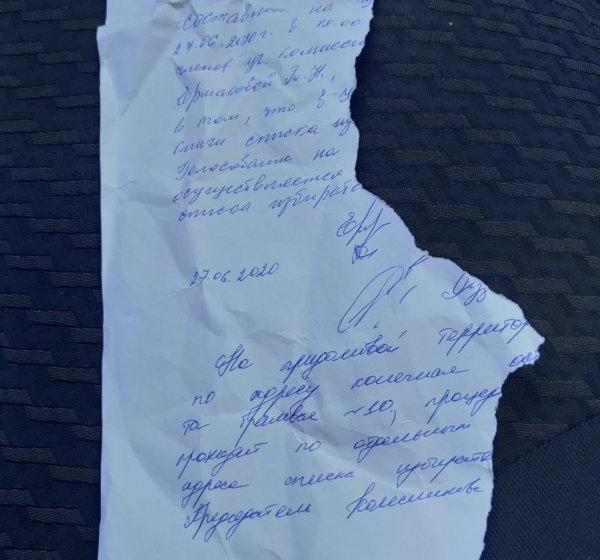 составлен на
27.06.2020г. в 18.00
членов уч. комисси
Гортаковой Т. Н.,
в том, что в у
книги списка из
Голосование на
осуществляется
списка избирате
27.06.2020
На придомовой территор
по адресу конечная ост
та трамвая №10, процед
проходит по отдельным
адреса списка избирате
Председатель Колесникова